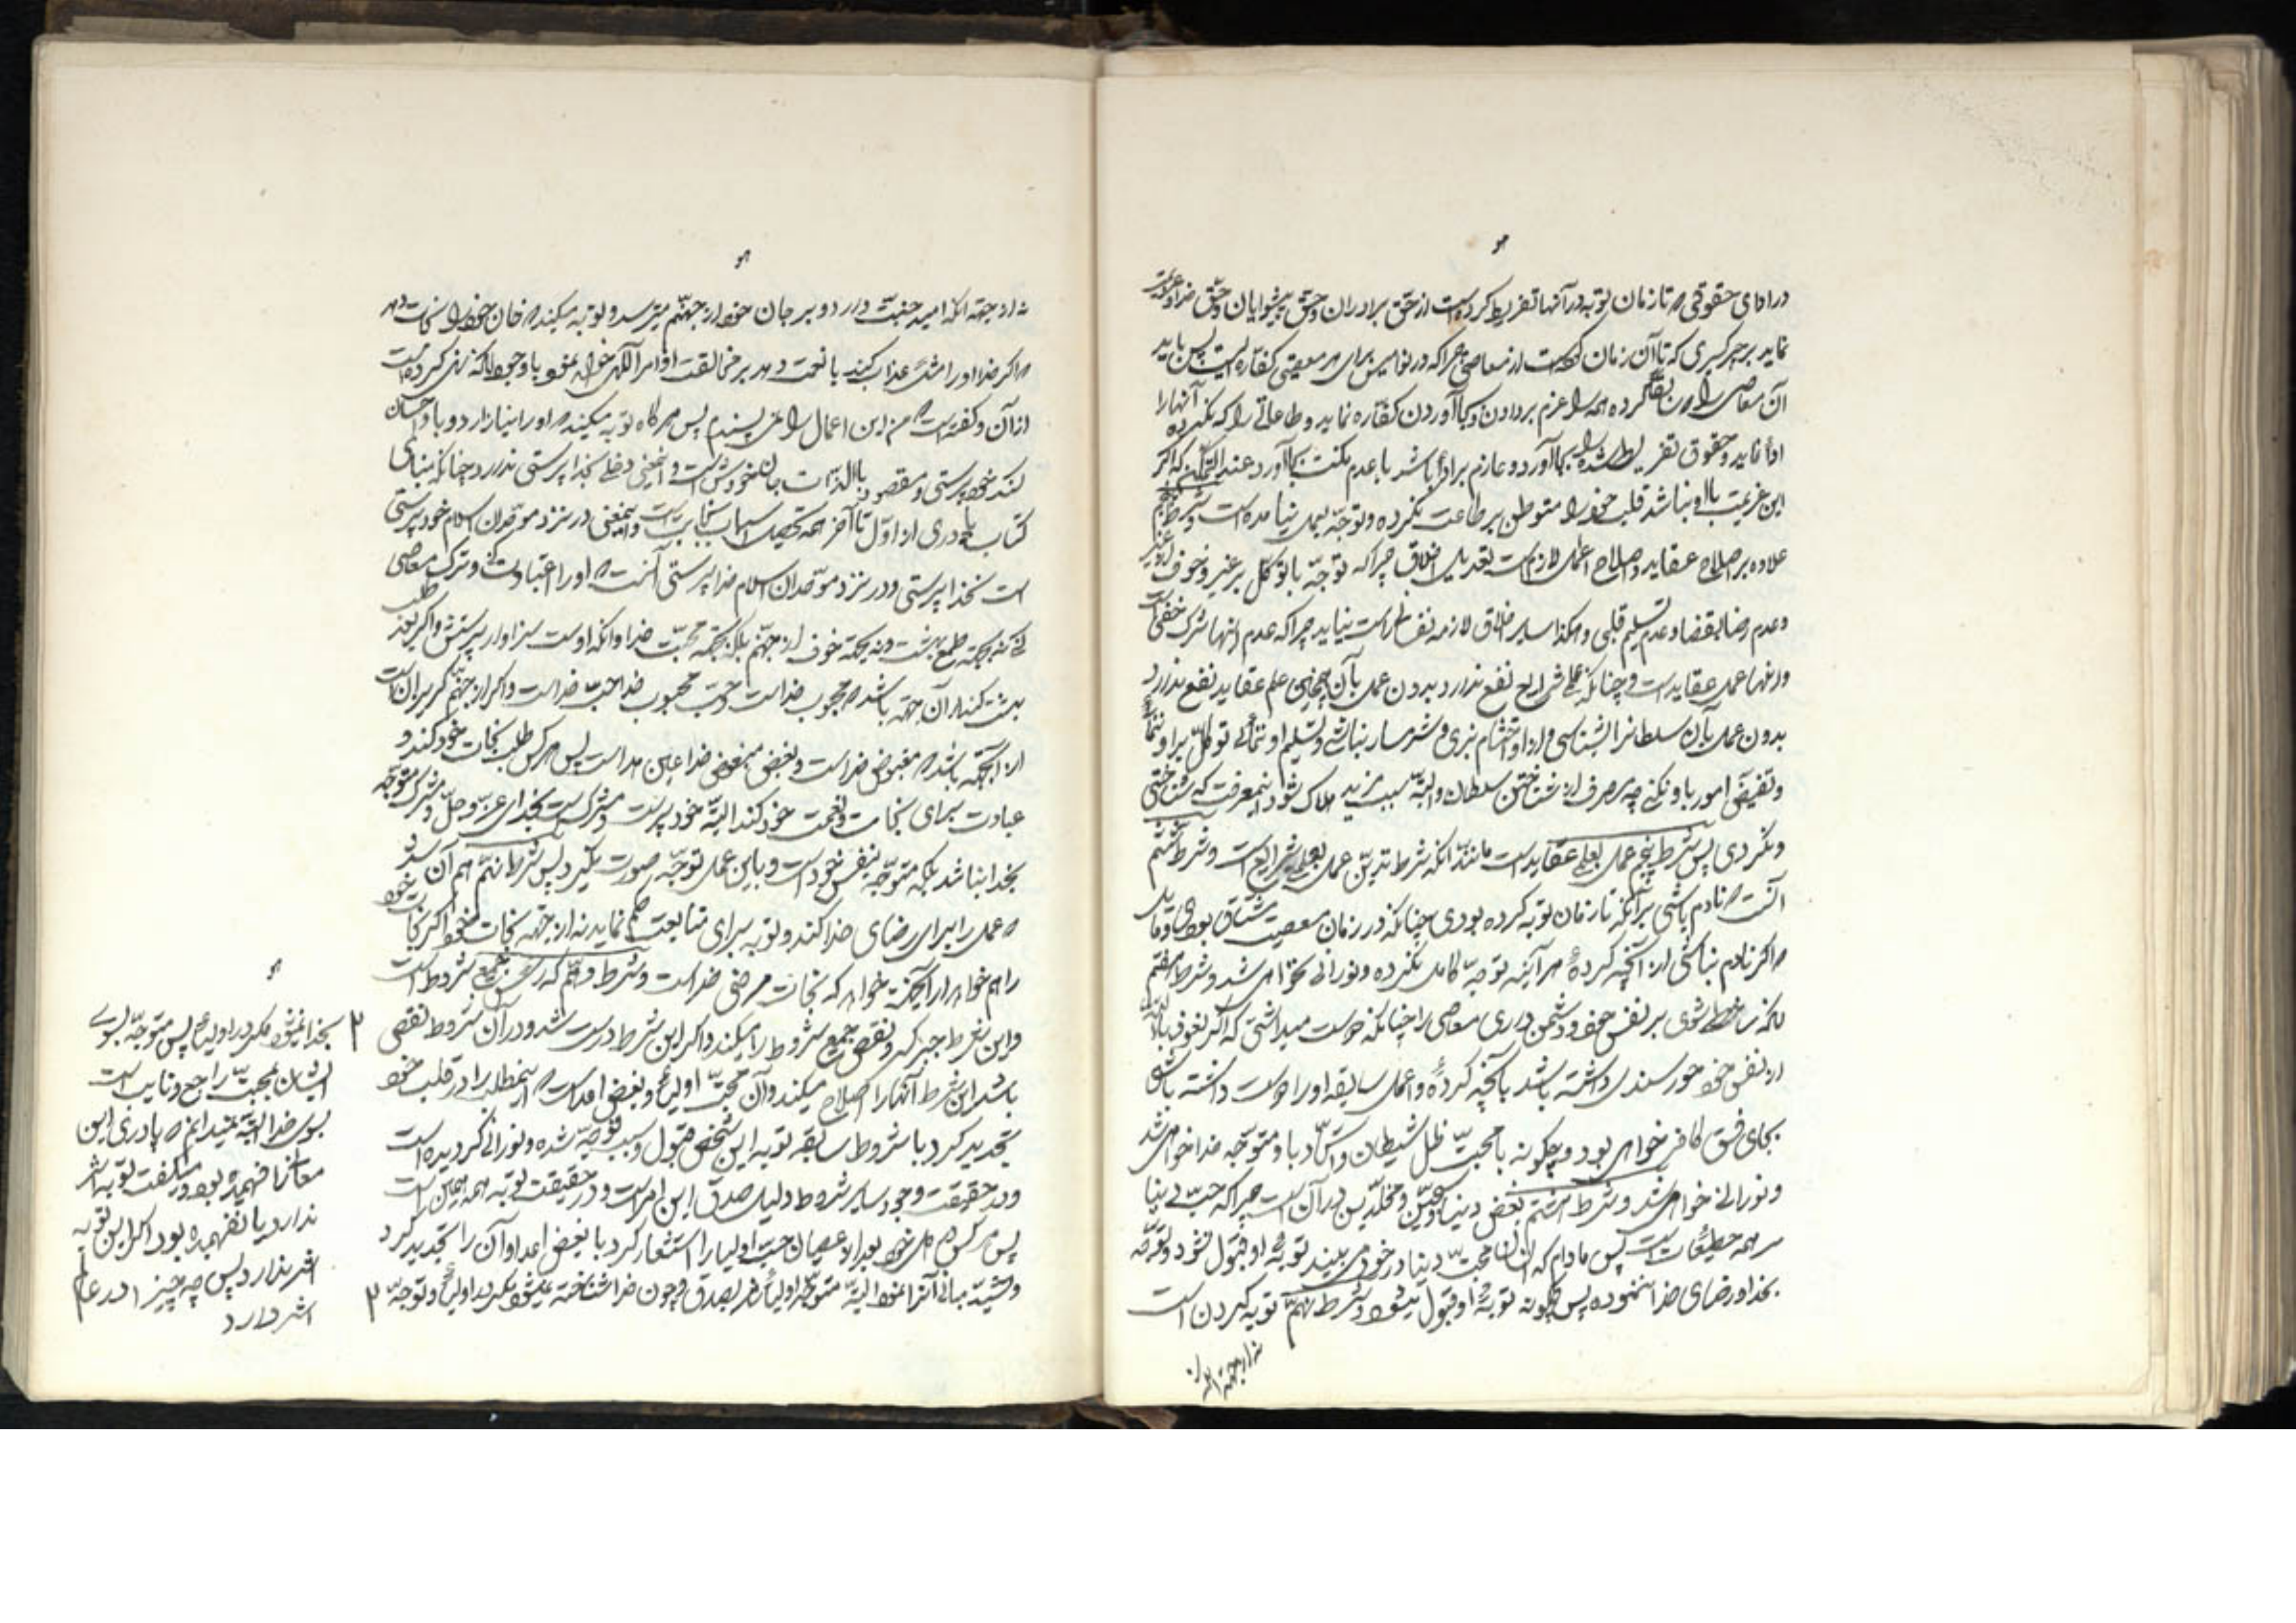 هو
در ادای حقوقی که تا زمان توبه در آنها تفریط کرده است از حق برادران و حق پیشوایان و حق خدا و عزیمت
نماید بر جبر کسری که تا آن زمان کرده است از معاصی چرا که در نوامیس برای هر معصیتی کفاره ایست پس باید
آن معاصی را کرده همه را عزم بر دادن و بجا آوردن کفاره نماید و طاعاتی را که نکرده آنها را
ادا نماید و حقوق تفریط شده را بجا آورد و عازم بر ادا باشد با عدم مکنت بجا آورد عند التمکن که اگر
این عزیمت با او نباشد قلب خود را متوطن بر طاعت نکرده و توجه بعمل نیامده است و شرط پنجم
علاوه بر اصلاح عقاید و اصلاح اعمال لازم است تعدیل اخلاق چرا که توجه با توکل بر غیر و خوف از غیر
و عدم رضا بقضا و عدم تسلیم قلبی و هکذا سایر اخلاق لازمه نفس راست نیاید چرا که عدم اینها شرک خفی است
و اینها عمل عقاید است و چنانکه علم شرایع نفع ندارد بدون عمل بآن همچنین علم عقاید نفع ندارد
بدون عمل بآن سلطانرا بشناسی و از او احتشام نبری و شرمسار نباشی و تسلیم او ننمائی توکل بر او ننمائی
و تفویض امور باو نکنی چه ثمر از شناختن سلطان و البته سبب مزید هلاک شود این معرفت که شناختی
و نکردی پس شرط پنجم عمل بعلم عقاید است مانند آنکه شرط تدین عمل بعلم شرایع است و شرط ششم
آنست که نادم باشی بر آنکه تا زمان توبه کرده بودی چنانکه در زمان معصیت مشتاق بودی و مایل
که اگر نادم نباشی از آنچه کرده هر آینه توجه کامل نکرده و نورانی نخواهی شد و شرط هفتم
آنکه ساخط شوی بر نفس خود و دشمن داری معاصی را چنانکه دوست میداشتی که اگر نعوذ بالله
از نفس خود خورسندی داشته باشد بآنچه کرده و اعمال سابقه او را دوست داشته باشی
بجای فسق کافر خواهی بود و چگونه با محبت ظل شیطان و تأسی باو متوجه خدا خواهی شد
و نورانی خواهی شد و شرط هشتم بغض دنیا و محبین و مخلدین در آن است چرا که حب دنیا
سر همه خطیئات است پس مادام که انسان محبت دنیا در خود می بیند توبه او قبول نشود و توجه
بخدا و رضای خدا ننموده پس چگونه توبه او قبول میشود و شرط نهم توبه کردن است
نه از جهة آنکه
هو
نه از جهة آنکه امید جنت دارد و بر جان خود از جهنم میترسد و توبه میکند که جان خود را نجات دهد
که اگر خدا او را عذاب کند یا نعمت دهد بر مخالفت اوامر آلهی خواهد بود با وجود آنکه نهی کرده است
از آن و گفته است که من این اعمال را نمی پسندم پس هرگاه توبه میکند که او را نیازارد و باو احسان
کند خودپرستی و مقصود بالذات جان خودش است و اینمعنی دخلی بخداپرستی ندارد چنانکه بنای
کتاب پادری از اول تا آخر همه تحصیل اسباب نجات است و اینمعنی در نزد موحدان اسلام خودپرستی
است نه خداپرستی و در نزد موحدان اسلام خداپرستی آنست که او را عبادت کنی و ترک معاصی
کنی نه بجهة طمع بهشت و نه بجهة خوف از جهنم بلکه بجهة محبت خدا و آنکه اوست سزاوار پرستش و اگر بعد طلب
بهشت کند از آن جهة باشد که محبوب خداست و حب محبوب خدا حب خداست و اگر از جهنم گریزان است
از آنجهة باشد که مبغوض خداست و بغض مبغوض خدا عین هداست پس هر کس طلب نجات خود کند و
عبادت برای نجات و نعمت خود کند البته خودپرست و مشرکست بخدای عز و جل و مشرک متوجه
بخدا نباشد بلکه متوجه بنفس خود است و باین عمل توجه صورت نگیرد پس شرط نهم هم آن شد
که عمل را برای رضای خدا کند و توبه برای متابعت حکم نماید نه از جهة نجات خود اگر نجات خود
را هم خواهد از آنجهة خواهد که نجات مرضی خداست و شرط دهم که رأس جمیع شروط است
و این شرط جبر کسر و نقص جمیع شروط را میکند و اگر این شرط درست شد و در آن شروط نقصی
باشد این شرط آنها را اصلاح میکند و آن محبت اولیا و بغض اعدا است که اینمطلب را در قلب خود
تجدید کرد با شروط سابقه توبه این شخص قبول و سبب توجه شده و نورانی گردیده است
و در حقیقت وجود سایر شروط دلیل صدق این امر است و در حقیقت توبه همه همین است
پس هر کس در خود بعد از عصیان حب اولیا را استشعار کرد با بغض اعدا و آن را تجدید کرد
و مبانی آنرا نمود البته متوجه اولیا بصدق و چون خدا شناخته نمیشود مگر در اولیا و توجه ۲
هو
۲ بخدا نمیشود مگر در اولیا پس متوجه بسوی
ایشان بمحبت راجع و تایب است
بسوی خدا البته نمیدانم که پادری این
معانی را فهمیده بود و میگفت توبه اثر
ندارد یا نفهمیده بود اگر این توبه
اثر ندارد پس چه چیز در عالم
اثر دارد